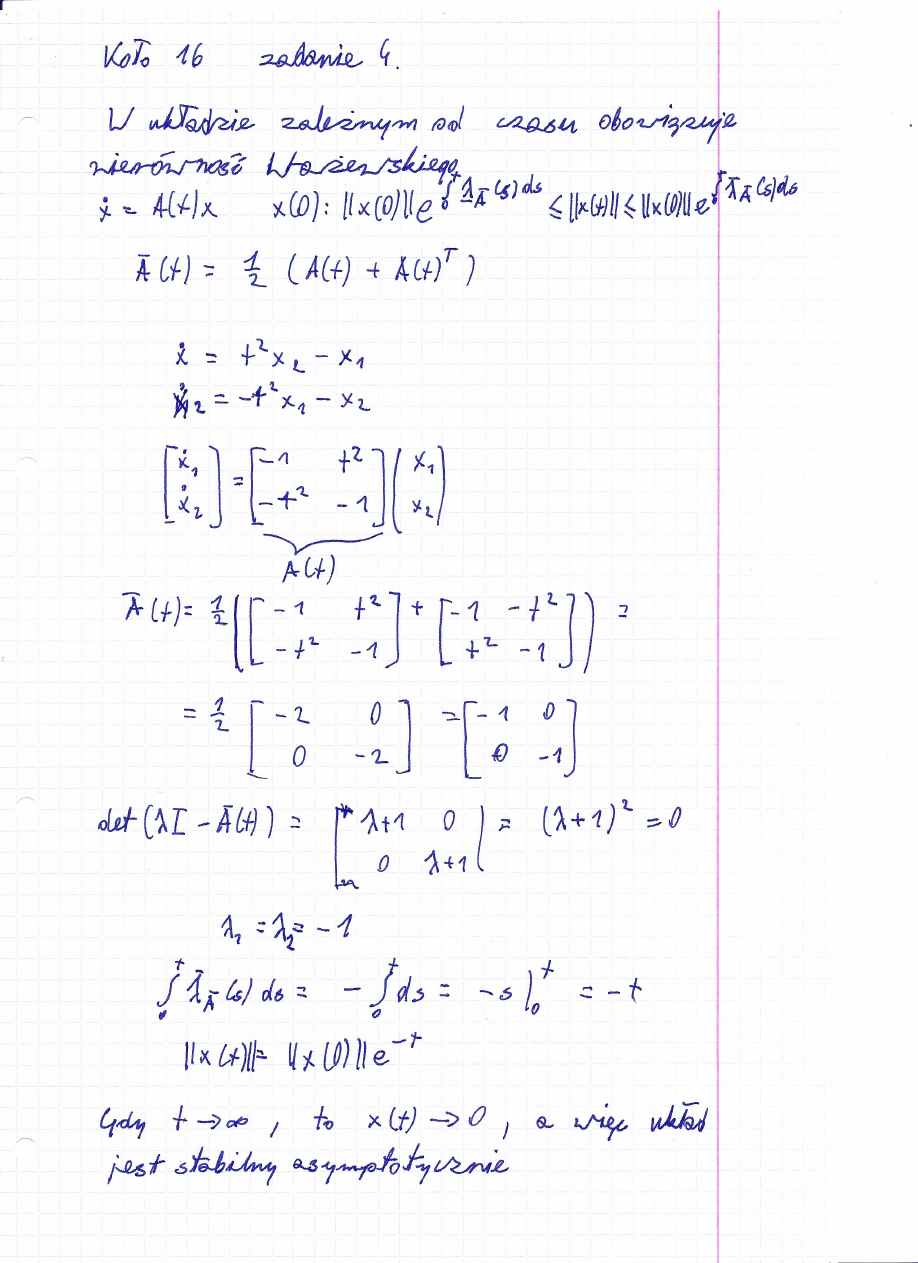 Koło 16 zadanie 4.
W układzie zależnym od czasu obowiązuje
nierówność Ważewskiego
ẋ = A(t)x x(0): ||x(0)|| e^{∫₀ᵗ λ_Ā(s) ds} ≤ ||x(t)|| ≤ ||x(0)|| e^{∫₀ᵗ λ̄_Ā(s) ds}
Ā(t) = 1/2 (A(t) + A(t)ᵀ)
ẋ = t²x₂ - x₁
ẋ₂ = -t²x₁ - x₂
[ẋ₁; ẋ₂] = [-1 t²; -t² -1] [x₁; x₂]
A(t)
Ā(t) = 1/2 ([-1 t²; -t² -1] + [-1 -t²; t² -1]) =
= 1/2 [-2 0; 0 -2] = [-1 0; 0 -1]
det(λI - Ā(t)) = |λ+1 0; 0 λ+1| = (λ+1)² = 0
λ₁ = λ₂ = -1
∫₀ᵗ λ̄_Ā(s) ds = -∫₀ᵗ ds = -s|₀ᵗ = -t
||x(t)|| = ||x(0)|| e⁻ᵗ
Gdy t → ∞, to x(t) → 0, a więc układ
jest stabilny asymptotycznie